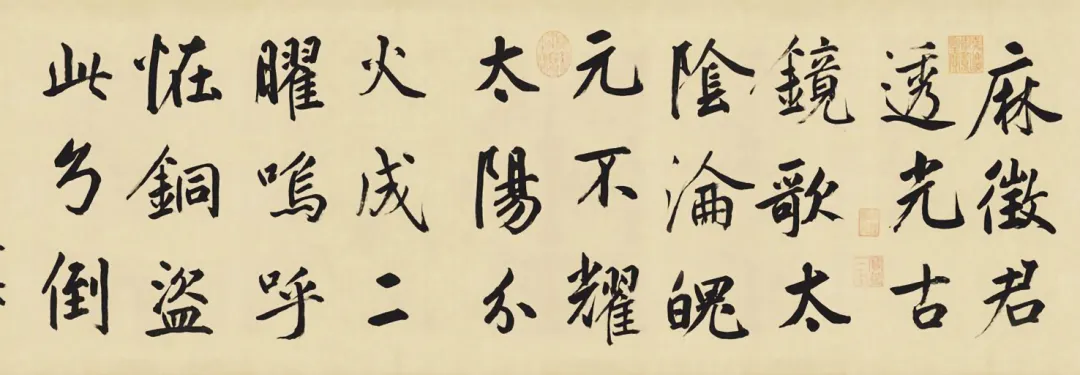 麻徵君
透光古
鏡歌太
陰淪魄
元不耀
太陽分
火成二
曜嗚呼
恠銅盜
此倒